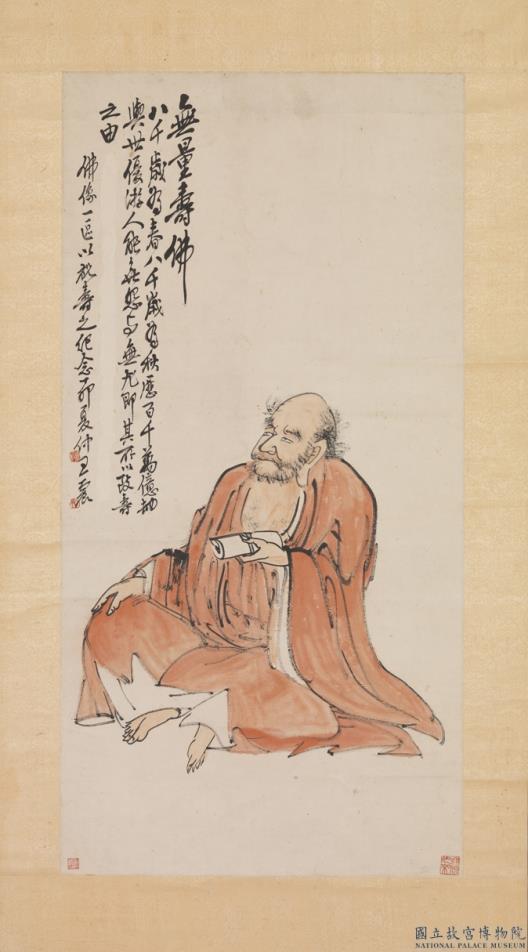 無量壽佛
八千歲為春八千歲為秋歷百千萬億劫
與世優游人能無怨與無尤即其所以致壽
之由
佛像一區以祝壽之紀念丁卯夏仲王震
國立故宮博物院
NATIONAL PALACE MUSEUM